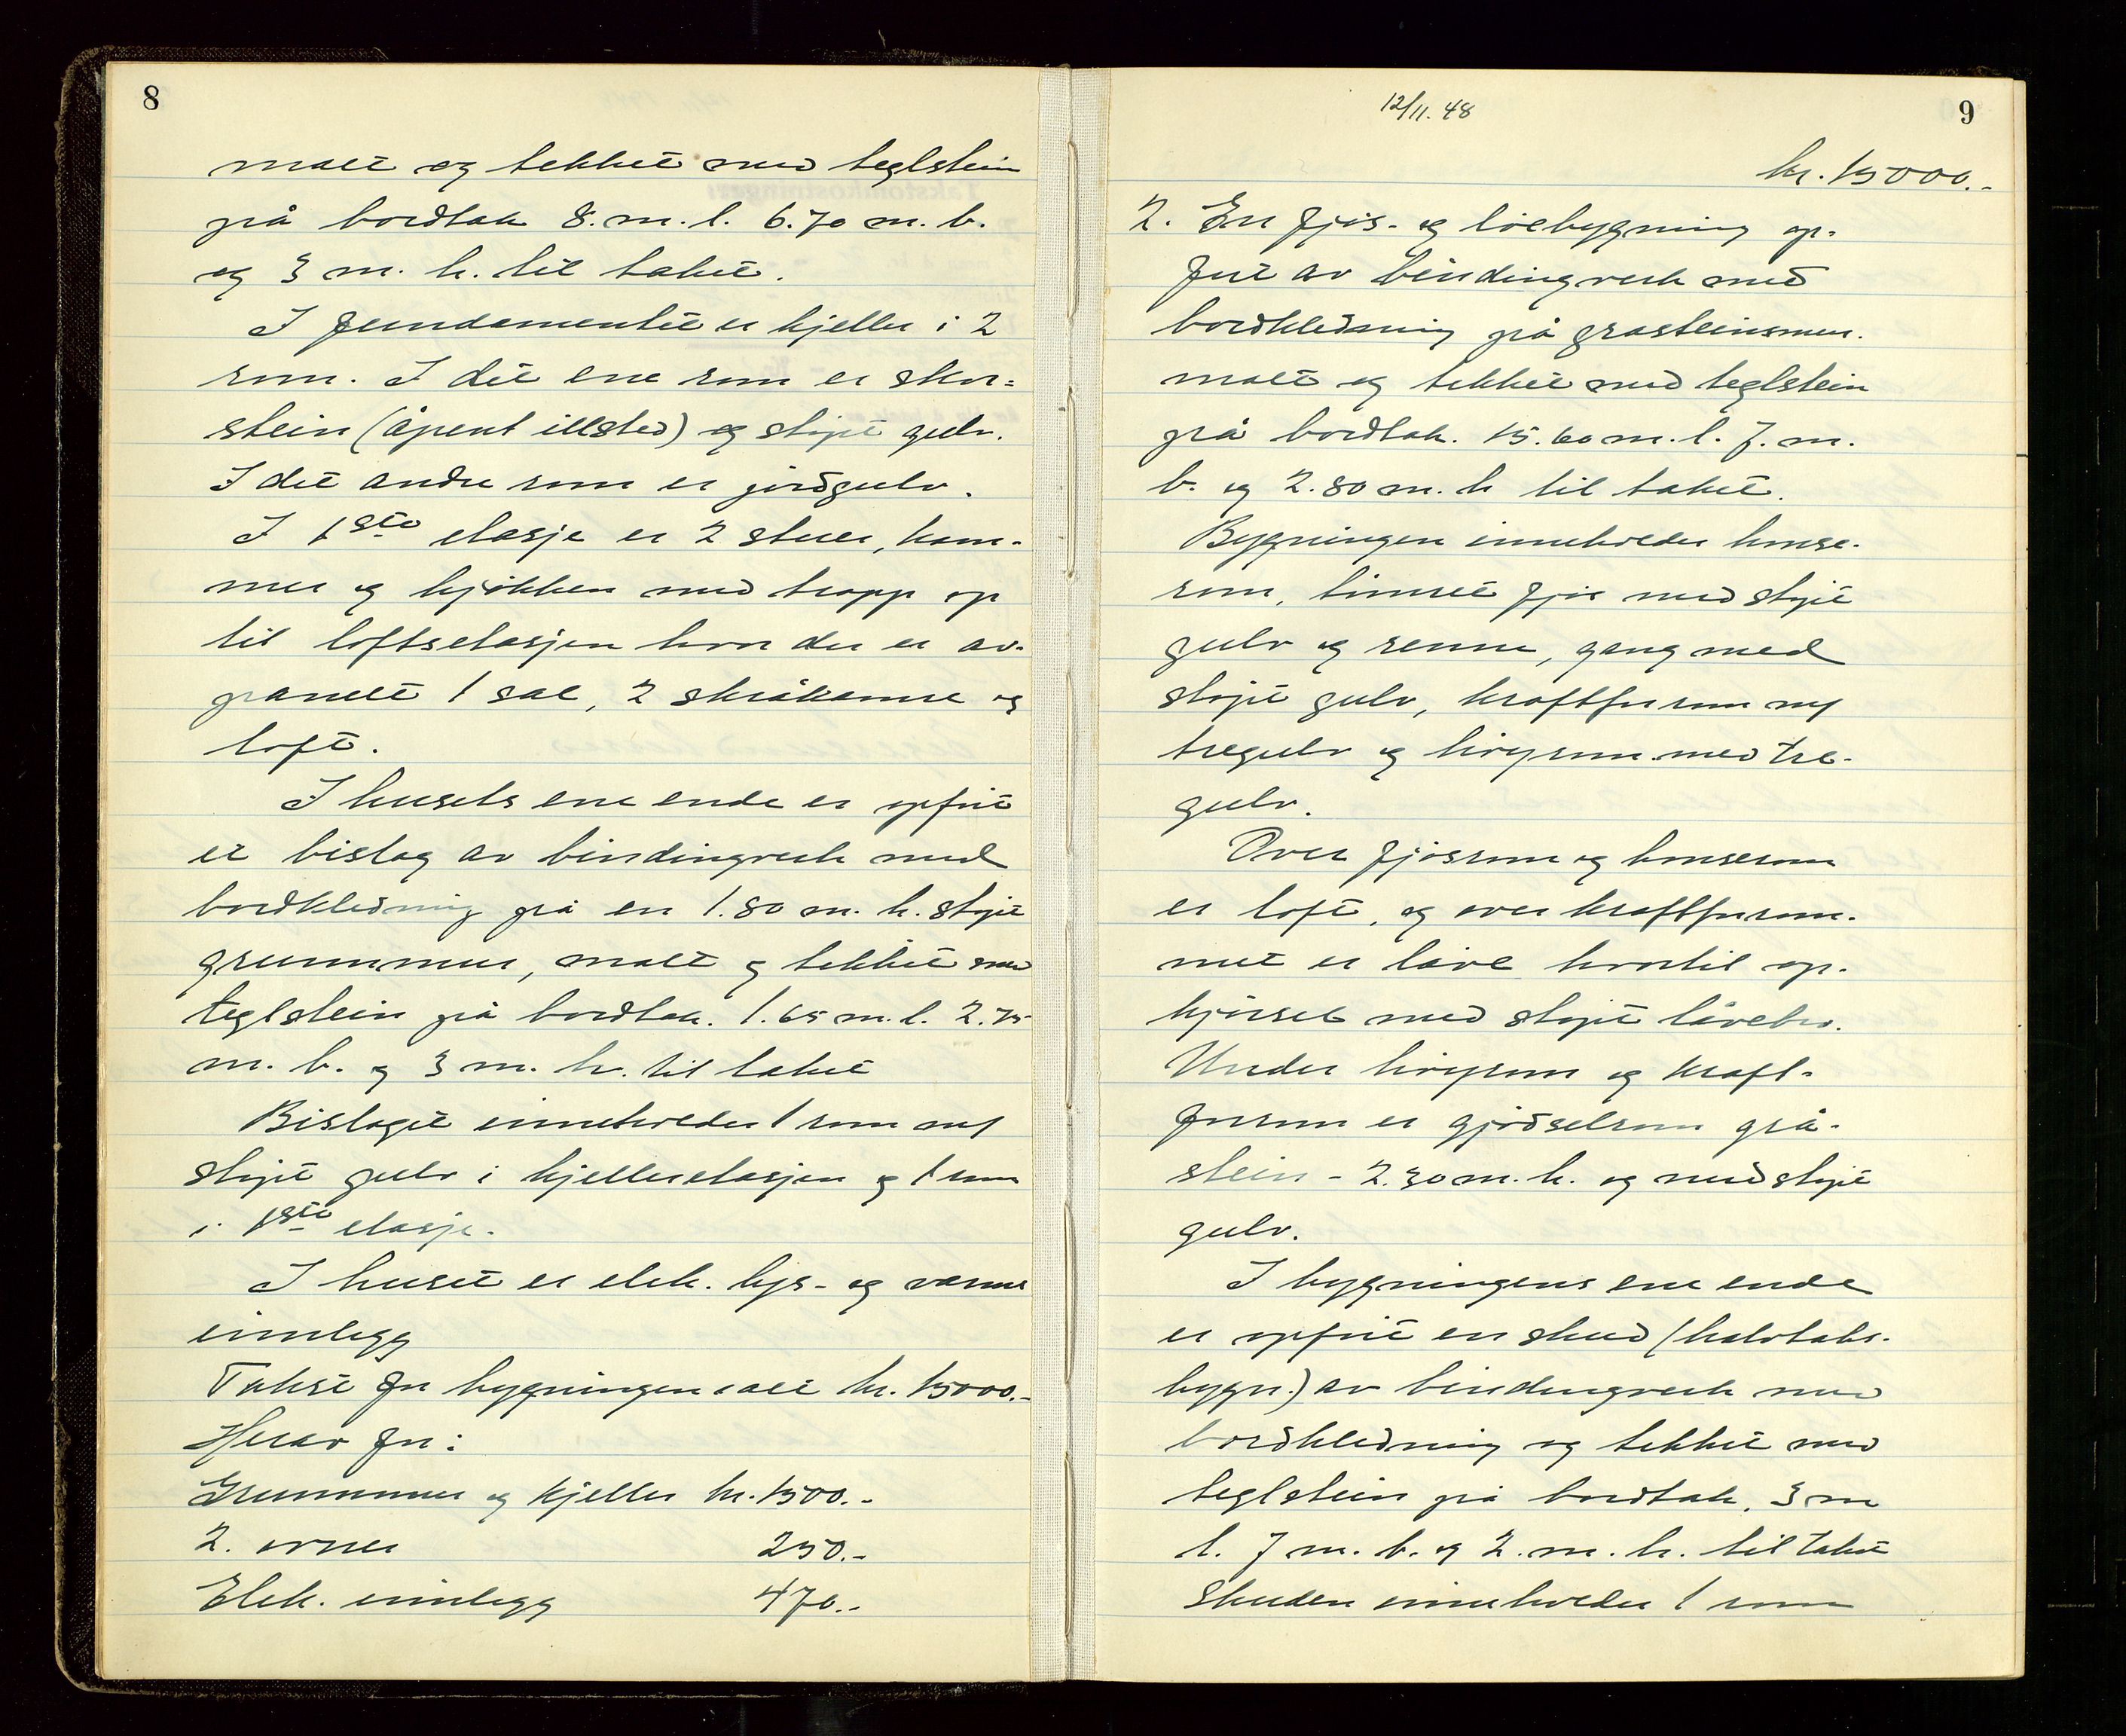 8
malt og tekket med teglstein
på bordtak 8. m. l. 6.70 m. b.
og 3 m. h. til taket.
I fundamentet er kjeller i 2
rom. I det ene rom er skor=
stein (åpent illsted) og støpt gulv.
I det andre rom er jordgulv.
I 1ste etasje er 2 stuer, kam-
mer og kjøkken med trapp op
til loftsetasjen hvor der er av-
panelt 1 sal, 2 skråkamre og
loft.
I husets ene ende er opført
et bislag av bindingverk med
bordkledning på en 1.80 m. h. støpt
grunnmur, malt og tekket med
teglstein på bordtak. 1.65 m. l. 2.75
m. b. og 3 m. h. til taket
Bislaget inneholder 1 rom m/
støpt gulv i kjelleretasjen og 1 rom
i 1ste etasje.
I huset er elek. lys- og varme
innlegg
Takst for bygningen i alt kr. 15000.-
Herav for:
Grunnmur og kjeller kr. 1500.-
2. ovner 250.-
Elek. innlegg 470.-
12/11. 48
9
kr. 15000.-
2. En fjøs- og løebygning op-
ført av bindingverk med
bordkledning på gråsteinsmur.
malt og tekket med teglstein
på bordtak. 15.60 m. l. 7. m.
b. og 2.80 m. h til taket.
Bygningen inneholder hønse-
rom, tømret fjøs med støpt
gulv og renne, gang med
støpt gulv, kraftforrom m/
tregulv og høyrom med tre-
gulv.
Over fjøsrom og hønserom
er loft, og over kraftforrom-
met er låve hvortil op-
kjørsel med støpt låvebro.
Under høyrom og kraft-
forrom er gjødselrom grå-
stein - 2.30 m. h. og med støpt
gulv.
I bygningens ene ende
er opført en skud (halvtaks-
bygn.) av bindingverk med
bordkledning og tekket med
teglstein på bordtak. 3 m
l. 7 m. b. og 2. m. h. til taket
Skuden inneholder 1 rom